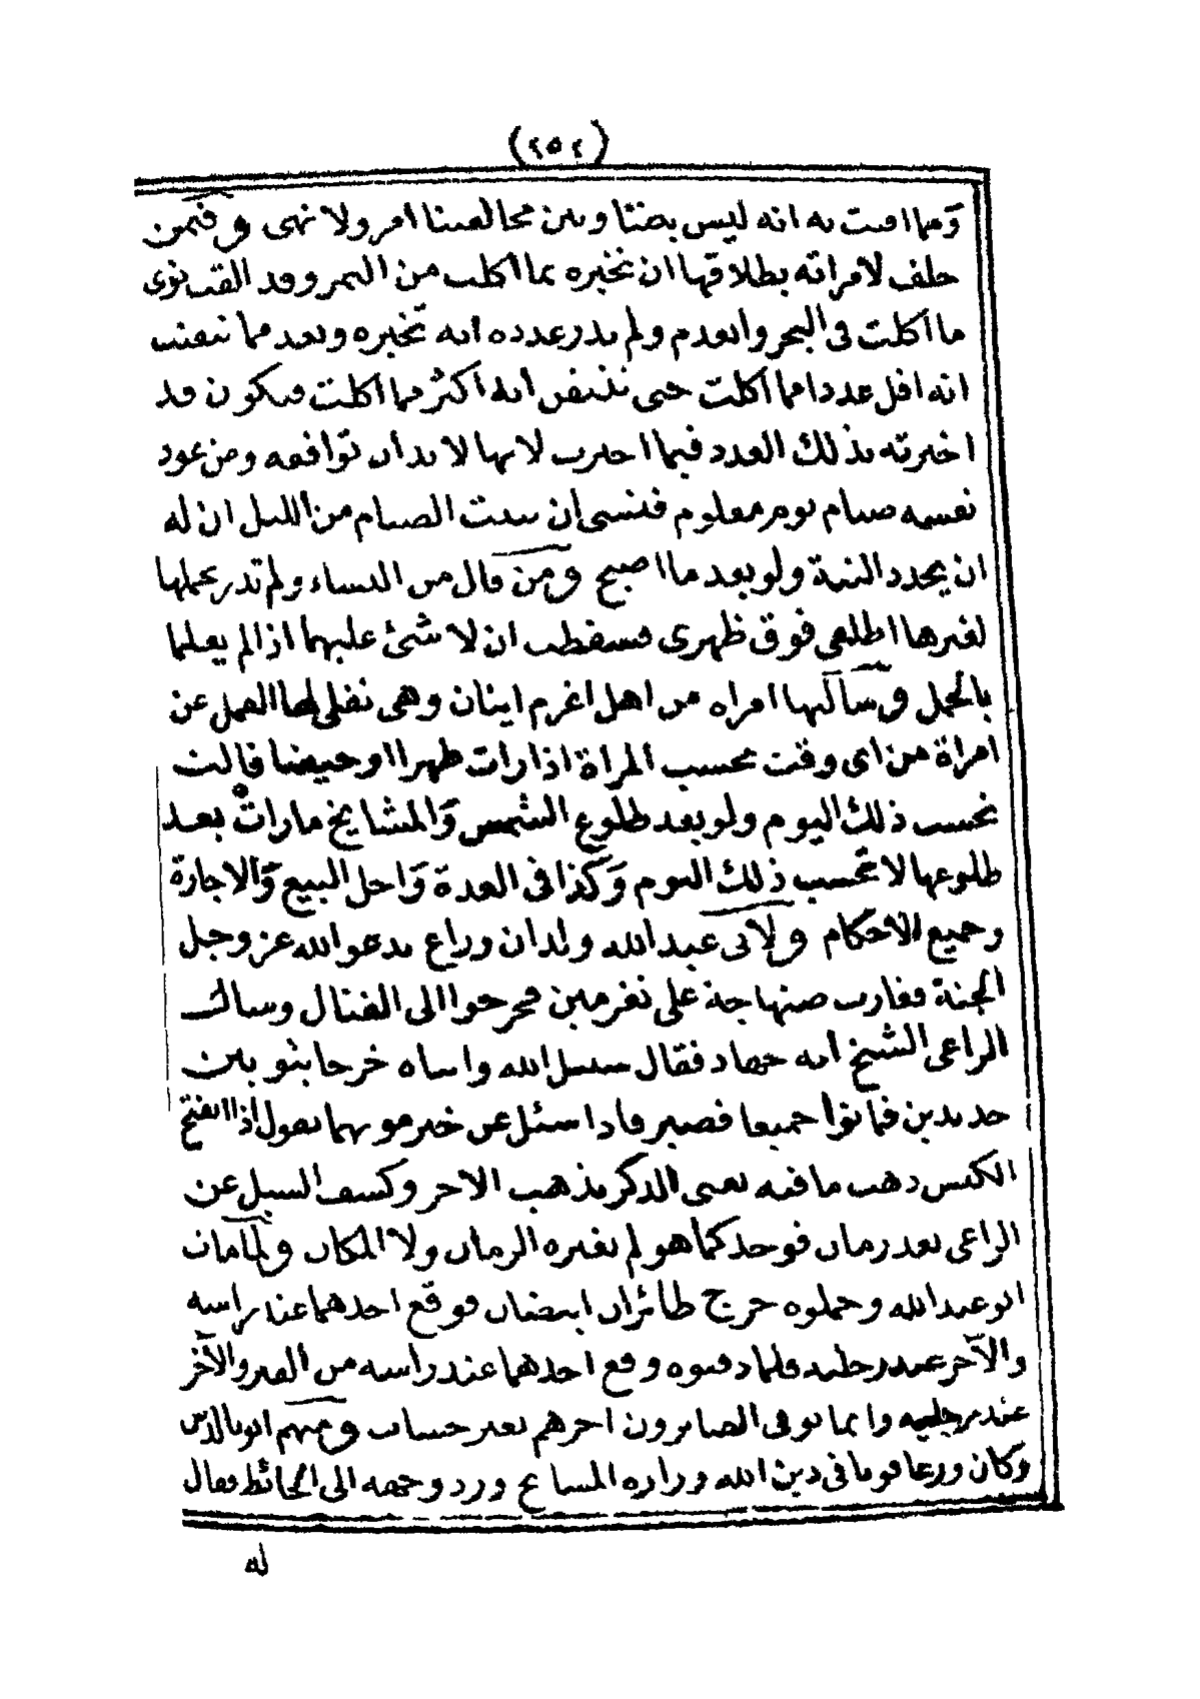 (٢٥٢)
ومما افتت به انه ليس بيننا وبين مخالفينا امر ولا نهى وفيمن
حلف لامراته بطلاقها ان تخبره بما اكلت من التمر وقد القت نوى
ما اكلت فى البحر وانعدم ولم يدر عدده انه تخبره وتعد مما تيقنت
انه اقل عددا مما اكلت حتى تتيقن انه اكثر مما اكلت فتكون قد
اخبرته بذلك العدد فيما اخبرت لانها لا بد ان توافقه ومن عود
نفسه صيام يوم معلوم فنسى ان يبيت الصيام من الليل ان له
ان يجدد النية ولو بعد ما اصبح ومن قال من النساء ولم تدر بحملها
لغيرها اطلعى فوق ظهرى فسقطت ان لا شئ عليهما اذا لم يعلما
بالحمل وسألتها امراه من اهل اغرم اينان وهى تفلى لها القمل عن
امراة من اى وقت تحسب المراة اذا رات طهرا او حيضا قالت
تحسب ذلك اليوم ولو بعد طلوع الشمس والمشايخ ما رات بعد
طلوعها لا تحسب ذلك اليوم وكذا فى العدة واجل البيع والاجارة
وجميع الاحكام ولابى عبد الله ولدان وراع يدعو الله عز وجل
الجنة فغارت صنهاجة على نفر مين فخرجوا الى القتال وسالت
الراعى الشيخ انه جهاد فقال سبيل الله واساه خرجا بثوبين
جديدين فماتوا جميعا فصبر فاذا سئل عن خبر موتهما يقول اذا انفتح
الكيس ذهب ما فيه يعنى الذكر يذهب الاجر وكسف السيل عن
الراعى بعد زمان فوجد كما هو لم يغيره الزمان ولا المكان ولما مات
ابو عبد الله وحملوه خرج طائران ابيضان فوقع احدهما عند راسه
والآخر عند رجليه فلما دفنوه وقع احدهما عند راسه من القبر والآخر
عند رجليه وانما يوفى الصابرون اجرهم بغير حساب ومنهم ابو
وكان ورعا قويا فى دين الله وزاره المشايخ ورد وجهه الى الحائط فقال
له